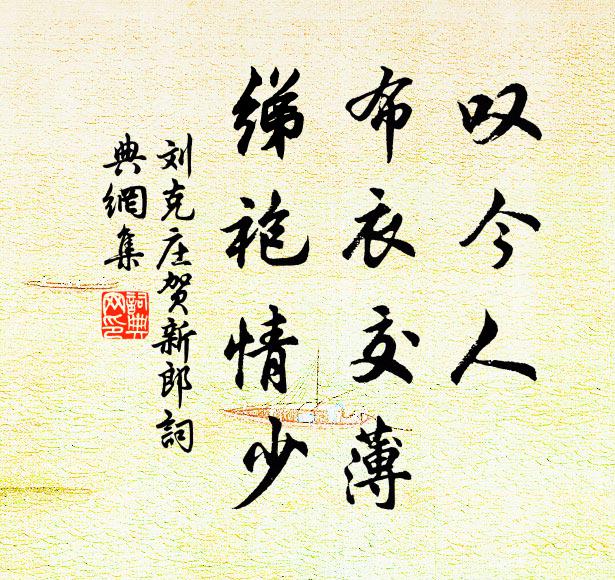 叹今人
布衣交薄
绨袍情少
刘克庄贺新郎詞
典網集
詞典
网印